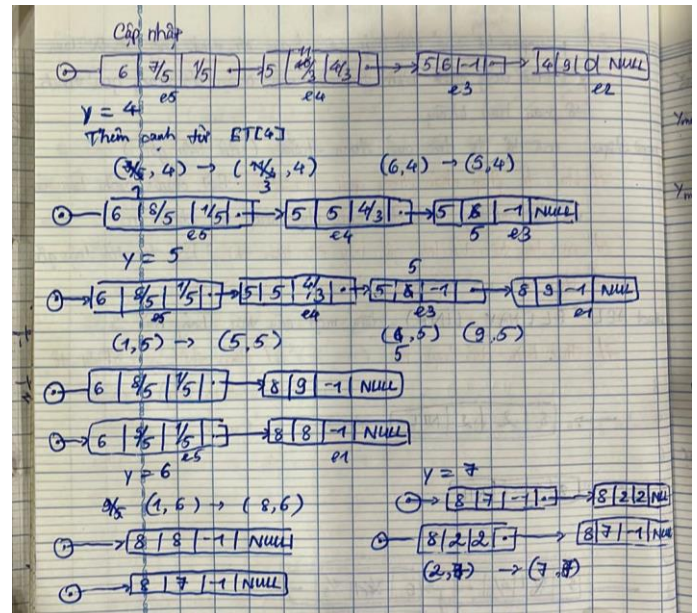 Cập nhật
6 | 7/5 | 1/5 | 5 | 11/3 | 4/3 | 5 | 6 | -1 | 4 | 9 | 0 | NULL
e5 e4 e3 e2
y = 4
Thêm cạnh từ ET[4]
, 4) → ( , 4) (6,4) → (5,4)
6 | 8/5 | 1/5 | 5 | 5 | 4/3 | 5 | | -1 | NULL
e5 e4 5 e3
y = 5
5
6 | 8/5 | 1/5 | 5 | 5 | 4/3 | 5 | | -1 | 8 | 9 | -1 | NULL
e5 e4 e3 e1
(1,5) → (5,5) ( ,5) (9,5)
5
6 | 8/5 | 1/5 | 8 | 9 | -1 | NULL
6 | 9/5 | 1/5 | 8 | 8 | -1 | NULL
e5 e1
y = 6 y = 7
9/5 (1,6) → (8,6) 8 | 7 | -1 | 8 | 2 | 2 | NU
8 | 8 | -1 | NULL 8 | 2 | 2 | 8 | 7 | -1 | NU
8 | 7 | -1 | NULL (2,7) → (7,7)